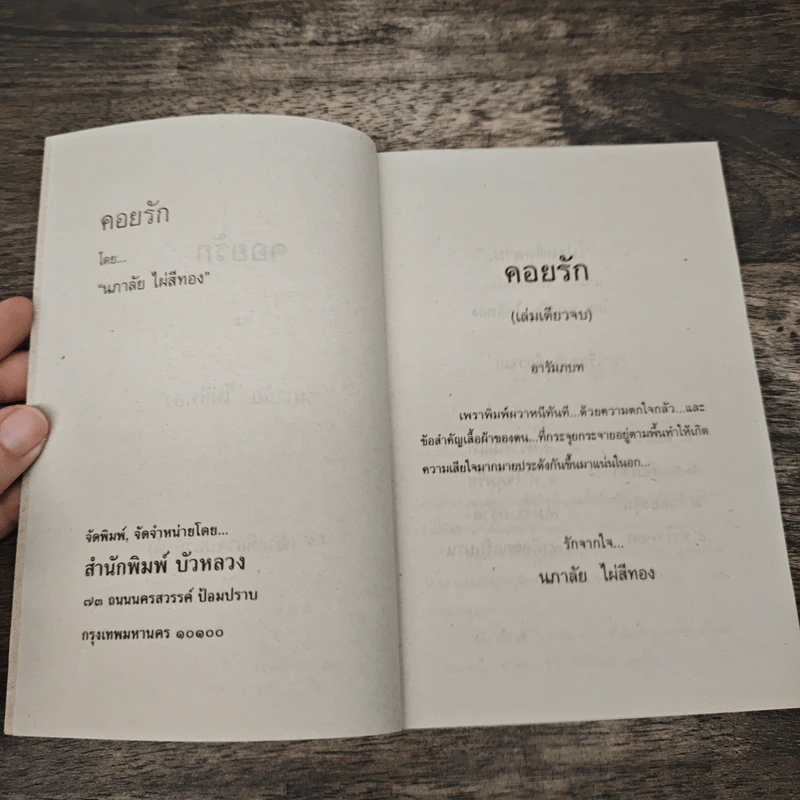 คอยรัก
โดย...
"นภาลัย ไผ่สีทอง"
จัดพิมพ์, จัดจำหน่ายโดย...
สำนักพิมพ์ บัวหลวง
๗๓ ถนนนครสวรรค์ ป้อมปราบ
กรุงเทพมหานคร ๑๐๑๐๐
คอยรัก
(เล่มเดียวจบ)
อารัมภบท
เพราพิมพ์ผวาหนีทันที...ด้วยความตกใจกลัว...และ
ข้อสำคัญเสื้อผ้าของตน...ที่กระจุยกระจายอยู่ตามพื้นทำให้เกิด
ความเสียใจมากมายประดังกันขึ้นมาแน่นในอก...
รักจากใจ...
นภาลัย ไผ่สีทอง